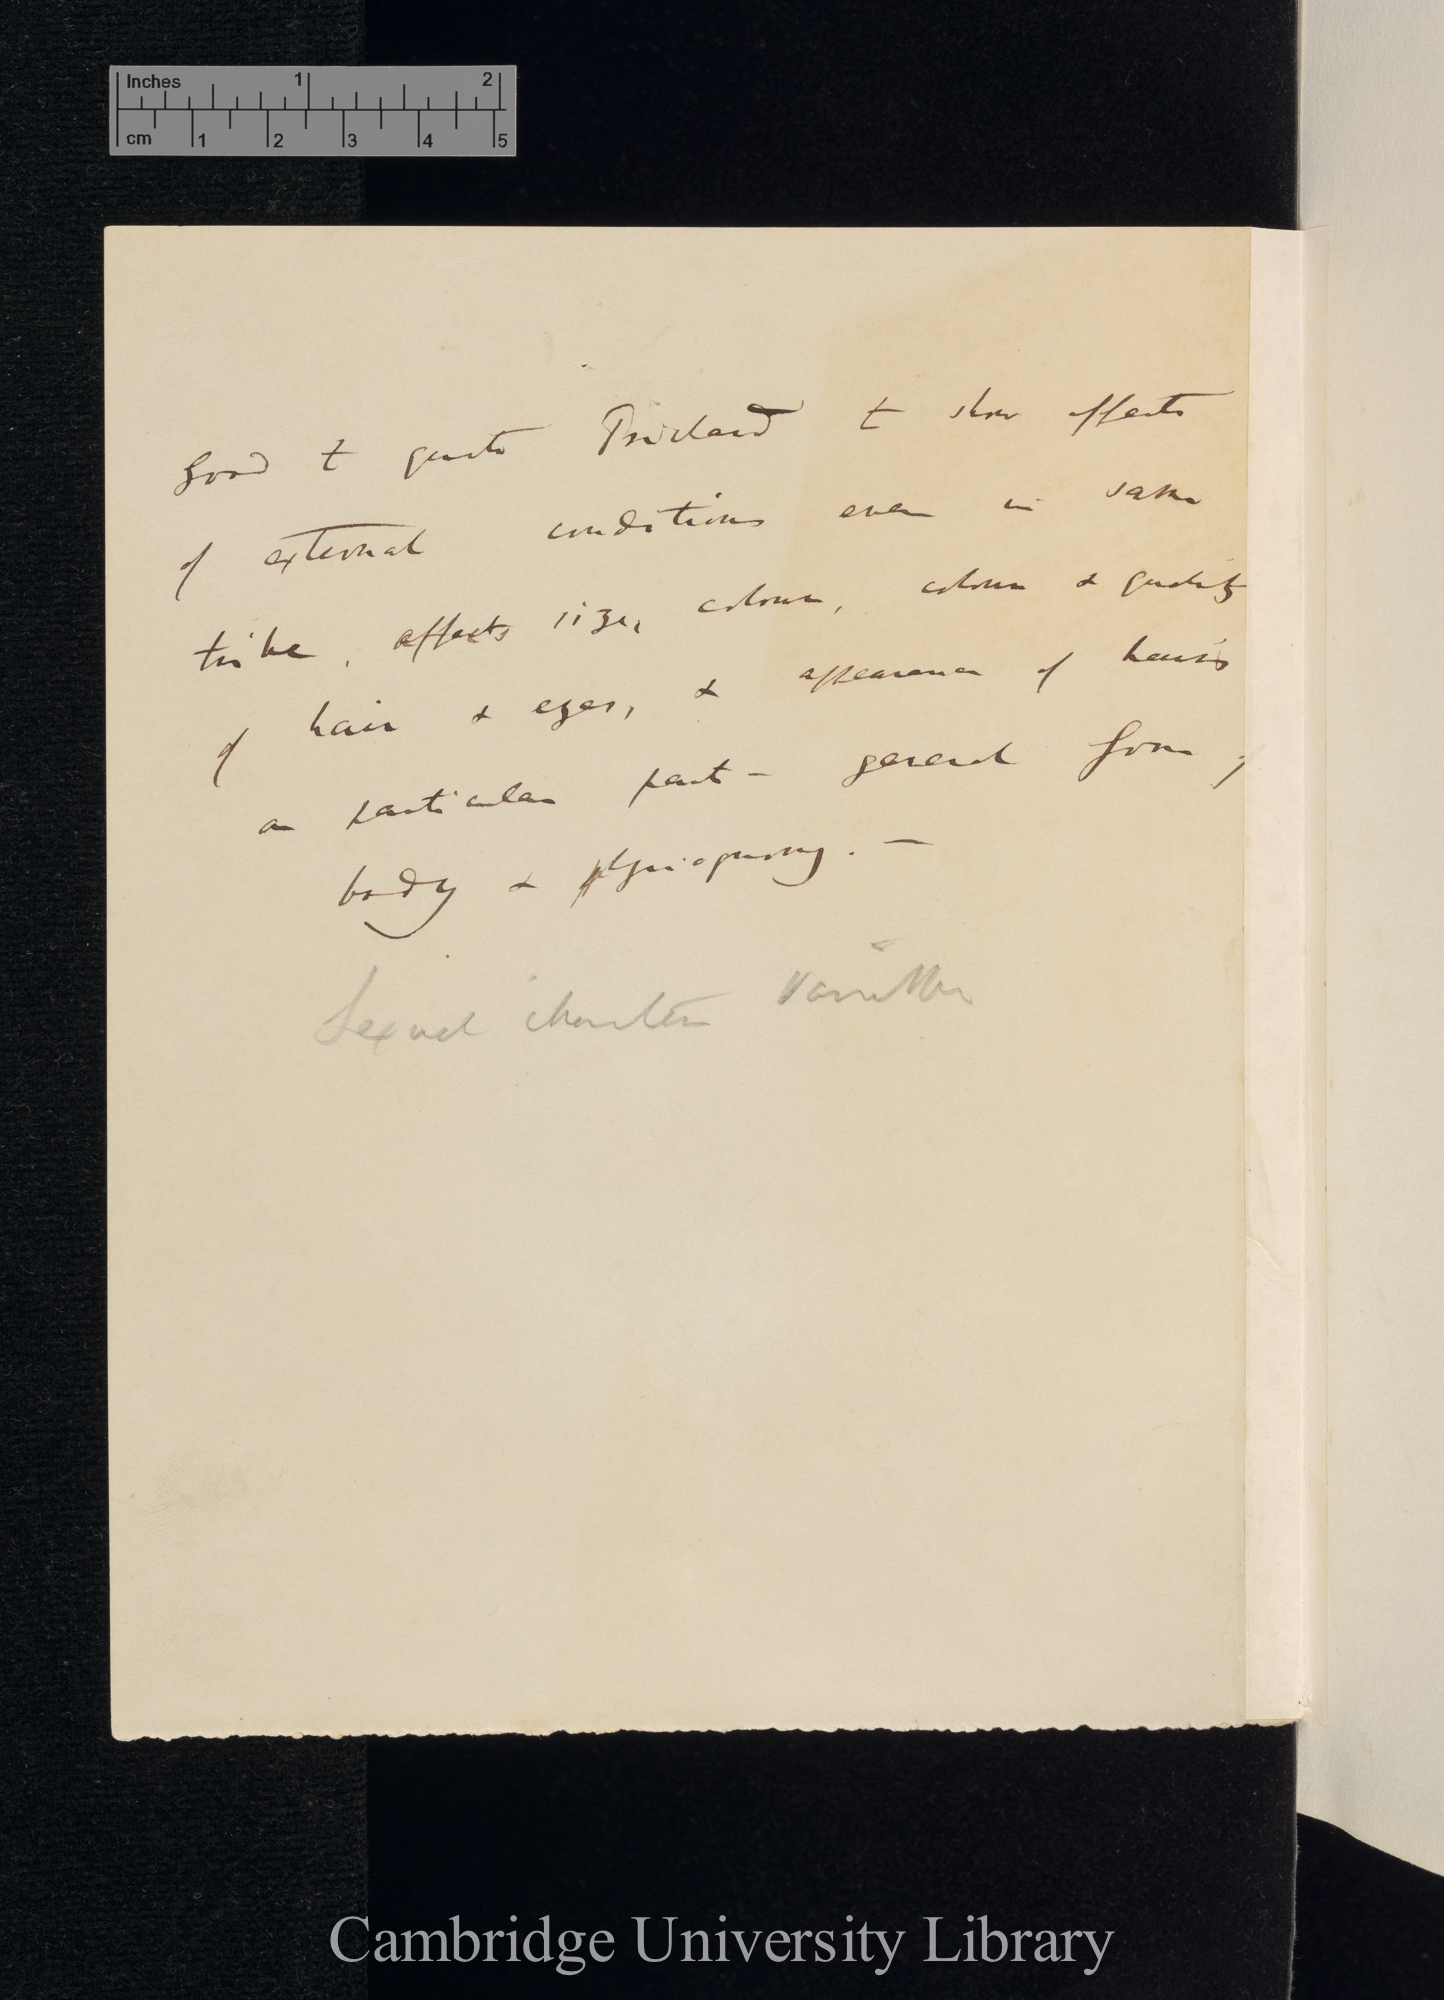 Inches 1 2
cm 1 2 3 4 5
Good to quote Prichard to show effects
of external conditions even in same
tribe, affects size, colour, colour & quality
of hair & eyes, & appearance of hairs
on particular part — general form of
body & physiognomy. —
Sexual character
Cambridge University Library